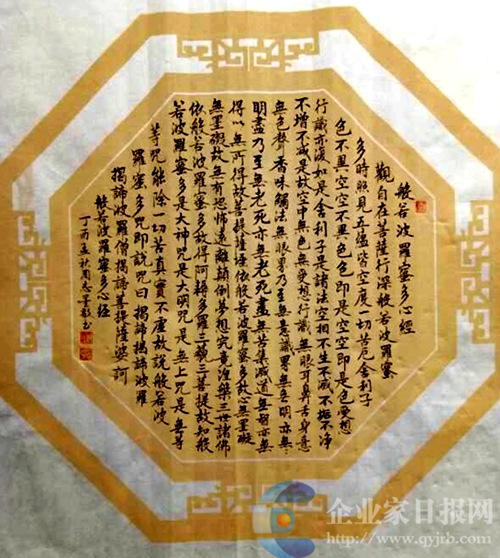 般若波羅蜜多心經
觀自在菩薩行深般若波羅蜜
多時照見五蘊皆空度一切苦厄舍利子
色不異空空不異色色即是空空即是色受想
行識亦復如是舍利子是諸法空相不生不滅不垢不淨
不增不減故空中無色無受想行識無眼耳鼻舌身意
無色聲香味觸法無眼界乃至無意識界無無明亦無無
明盡乃至無老死亦無老死盡無苦集滅道無智亦無
得以無所得故菩提薩埵依般若波羅蜜多故心無罣礙
無罣礙故無有恐怖遠離顛倒夢想究竟涅槃三世諸佛
依般若波羅蜜多故得阿耨多羅三藐三菩提故知般
若波羅蜜多是大神咒是大明咒是無上咒是無等
等咒能除一切苦真實不虛故說般若波
羅蜜多咒即說咒曰揭諦揭諦波羅
揭諦波羅僧揭諦菩提薩婆訶
般若波羅蜜多心經
丁酉孟秋周志
企业家日报网
www.qyjrb.com